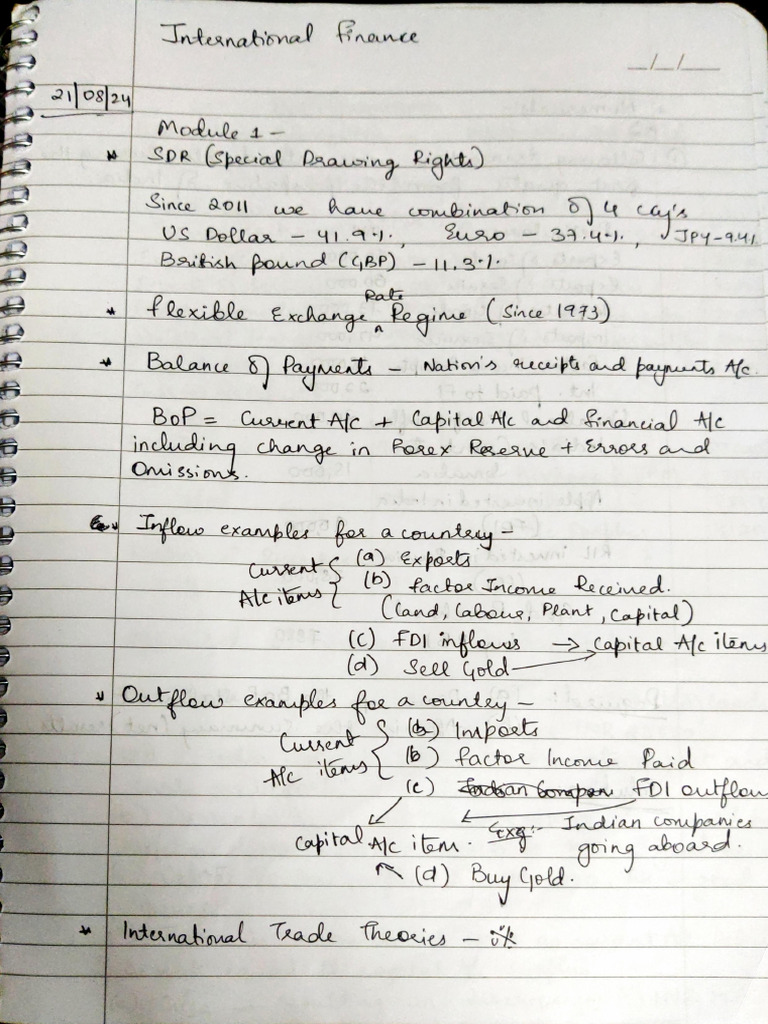 International Finance
_/_/_
21/08/24
Module 1 -
* SDR (Special Drawing Rights)
Since 2011 we have combination of 4 ccy's
US Dollar - 41.9%, Euro - 37.4%, JPY-9.4%
British pound (GBP) - 11.3%
* flexible Exchange Rate Regime (Since 1973)
* Balance of Payments - Nation's receipts and payments A/c.
BoP = Current A/c + Capital A/c and financial A/c
including change in Forex Reserve + Errors and
Omissions.
* Inflow examples for a country -
Current A/c items { (a) Exports
(b) factor Income Received.
(Land, Labour, Plant, Capital)
(c) FDI inflows → Capital A/c items
(d) Sell Gold
* Outflow examples for a country -
Current A/c items { (a) Imports
(b) factor Income Paid
(c) FDI outflow
Capital A/c item. Exg:- Indian companies
going aboard.
(d) Buy Gold.
* International Trade Theories -